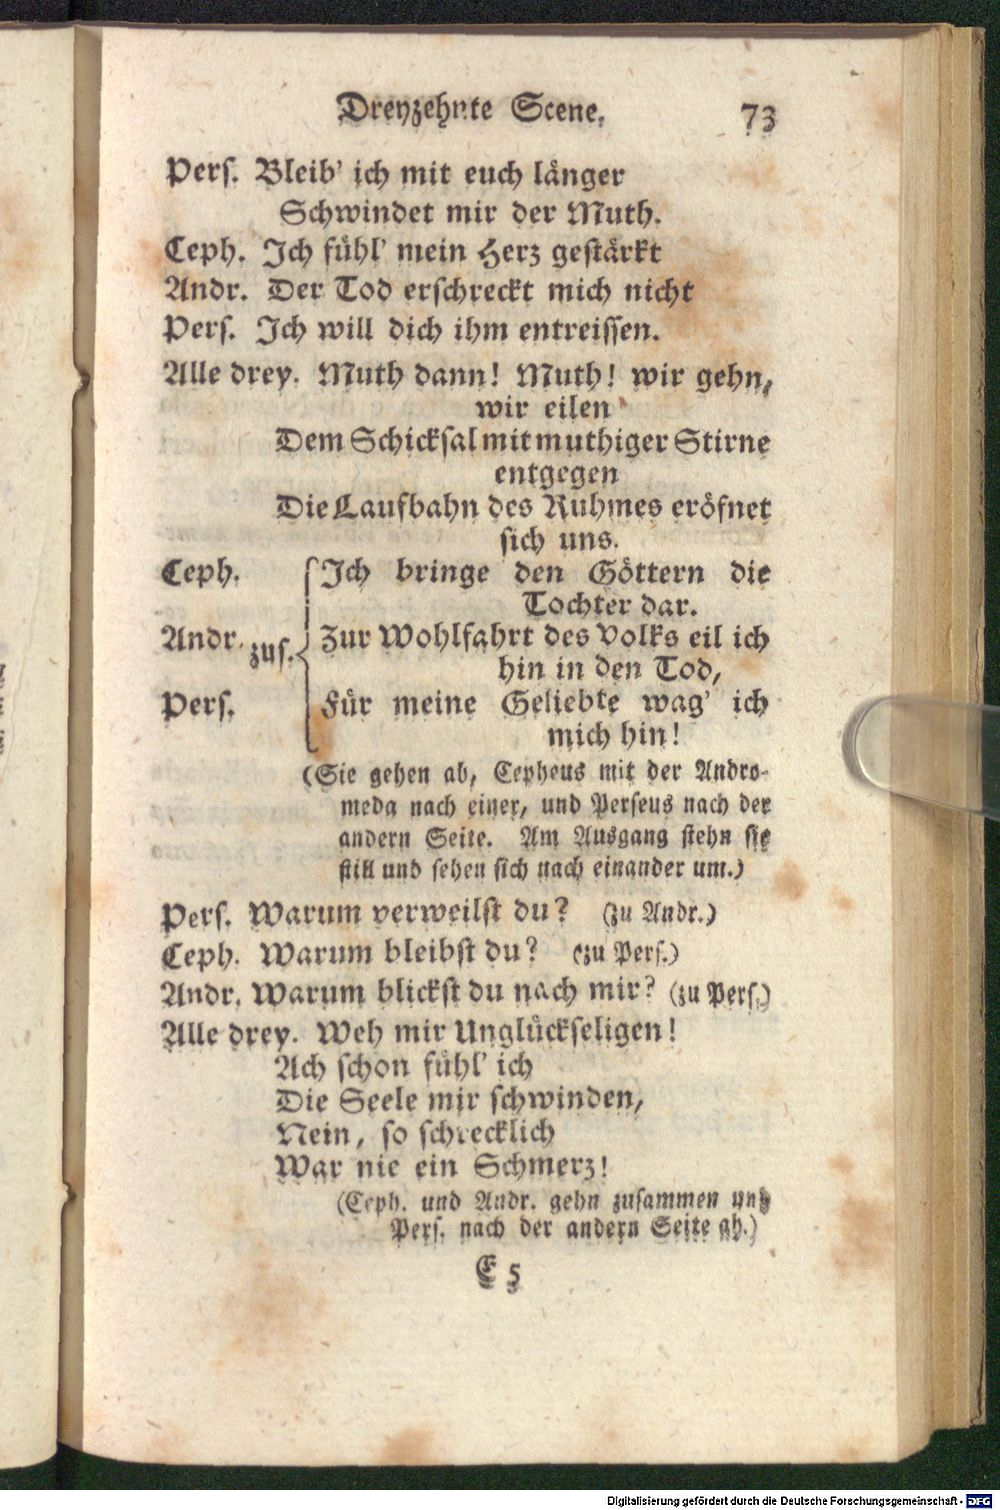 Dreyzehnte Scene. 73
Pers. Bleib' ich mit euch länger
Schwindet mir der Muth.
Ceph. Ich fühl' mein Herz gestärkt
Andr. Der Tod erschreckt mich nicht
Pers. Ich will dich ihm entreissen.
Alle drey. Muth dann! Muth! wir gehn,
wir eilen
Dem Schicksal mit muthiger Stirne
entgegen
Die Laufbahn des Ruhmes eröfnet
sich uns.
Ceph. Ich bringe den Göttern die
Tochter dar.
Andr. zus. Zur Wohlfahrt des Volks eil ich
hin in den Tod,
Pers. Für meine Geliebte wag' ich
mich hin!
(Sie gehen ab, Cepheus mit der Andro-
meda nach einer, und Perseus nach der
andern Seite. Am Ausgang stehn sie
still und sehen sich nach einander um.)
Pers. Warum verweilst du? (zu Andr.)
Ceph. Warum bleibst du? (zu Pers.)
Andr. Warum blickst du nach mir? (zu Pers.)
Alle drey. Weh mir Unglückseligen!
Ach schon fühl' ich
Die Seele mir schwinden,
Nein, so schrecklich
War nie ein Schmerz!
(Ceph. und Andr. gehn zusammen und
Pers. nach der andern Seite ab.)
E 5
Digitalisierung gefördert durch die Deutsche Forschungsgemeinschaft - DFG